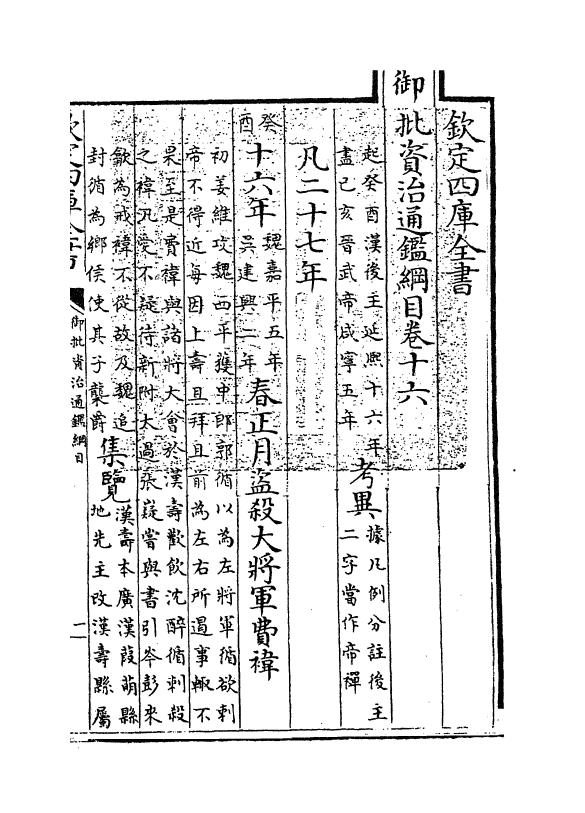 欽定四庫全書
御批資治通鑑綱目卷十六
起癸酉漢後主延熙十六年
盡己亥晉武帝咸寧五年
考異
據凡例分註後主
二字當作帝禪
凡二十七年
癸酉
十六年
魏嘉平五年
吳建興二年
春正月盜殺大將軍費禕
初姜維攻魏西平獲中郎郭循以為左將軍循欲刺
帝不得近每因上壽且拜且前為左右所遏事輒不
果至是費禕與諸將大會於漢壽歡飲沈醉循刺殺
之禕汎愛不疑待新附太過張嶷嘗與書引岑彭來
歙為戒禕不從故及魏追
封循為鄉侯使其子襲爵
集覽
漢壽本廣漢葭萌縣
地先主改漢壽縣屬
欽定四庫全書
御批資治通鑑綱目